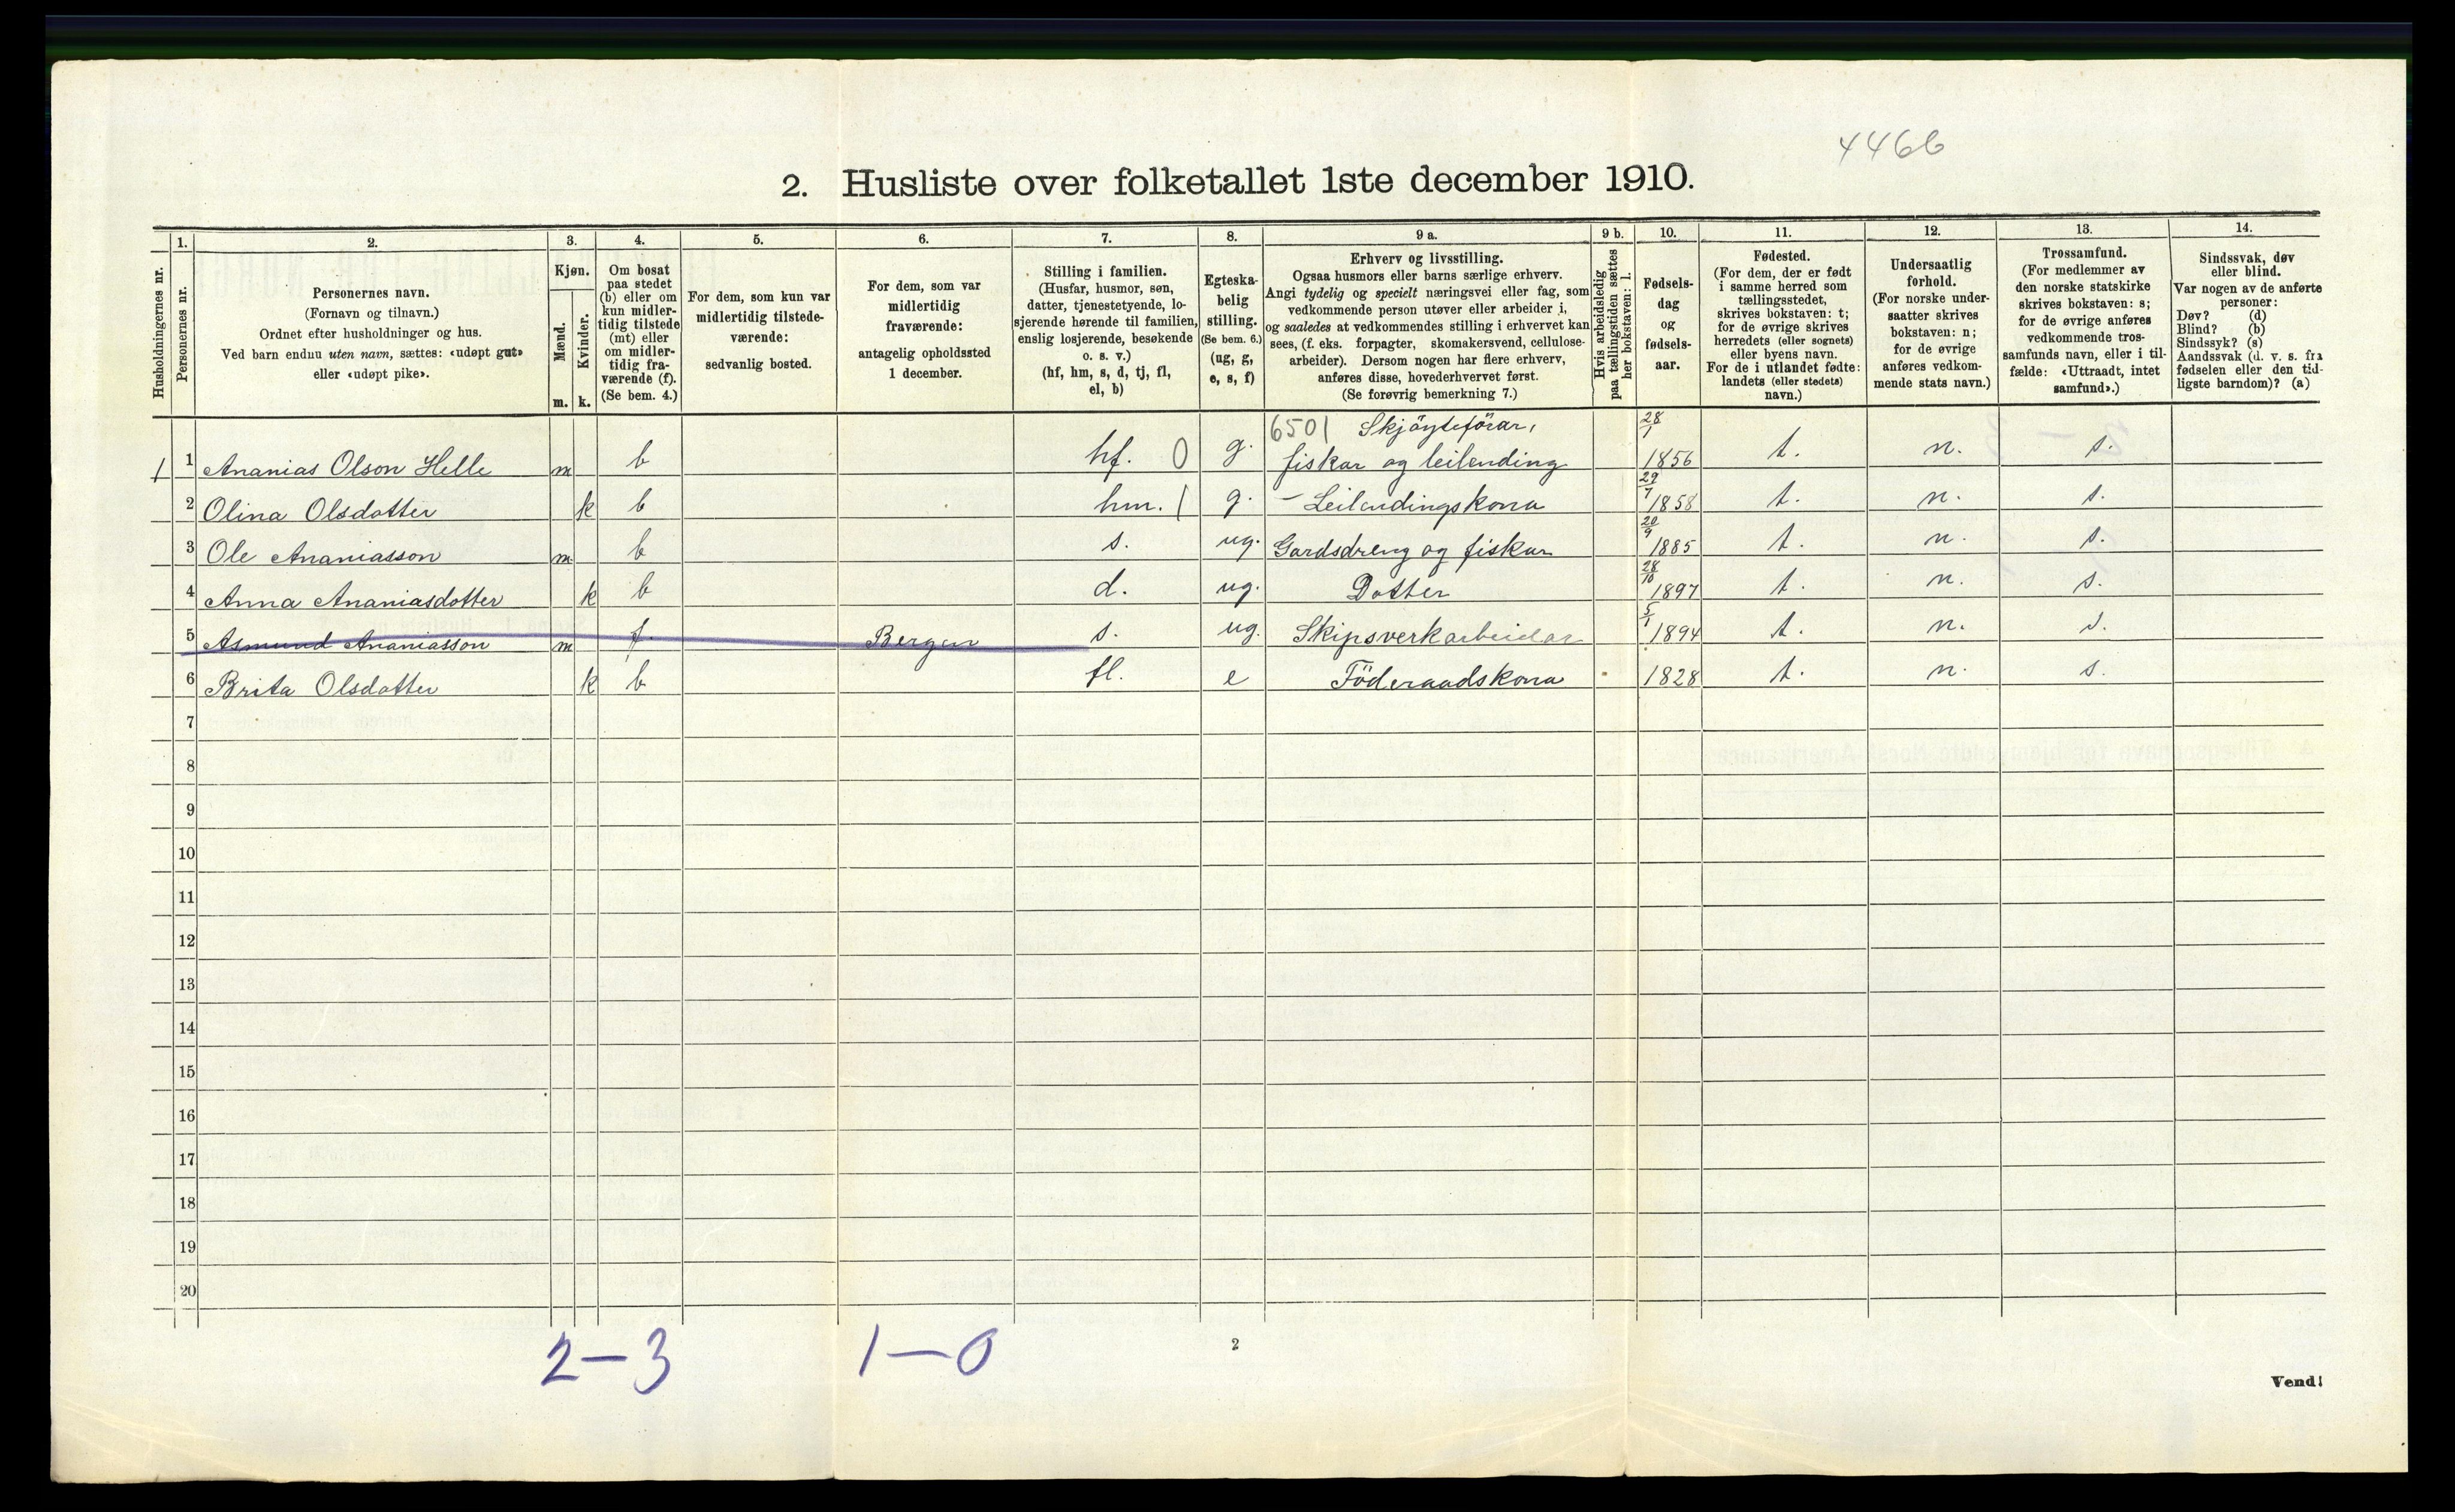 4466
2. Husliste over folketallet 1ste december 1910.
Husholdningernes nr.
1.
Personernes nr.
2.
Personernes navn.
(Fornavn og tilnavn.)
Ordnet efter husholdninger og hus.
Ved barn endnu uten navn, sættes: «udøpt gut»
eller «udøpt pike».
3.
Kjøn.
Mænd.
Kvinder.
m. k.
4.
Om bosat
paa stedet
(b) eller om
kun midler-
tidig tilstede
(mt) eller
om midler-
tidig fra-
værende (f).
(Se bem. 4.)
5.
For dem, som kun var
midlertidig tilstede-
værende:
sedvanlig bosted.
6.
For dem, som var
midlertidig
fraværende:
antagelig opholdssted
1 december.
7.
Stilling i familien.
(Husfar, husmor, søn,
datter, tjenestetyende, lo-
sjerende hørende til familien,
enslig losjerende, besøkende
o. s. v.)
(hf, hm, s, d, tj, fl,
el, b)
8.
Egteska-
belig
stilling.
(Se bem. 6.)
(ug, g,
e, s, f)
9 a.
Erhverv og livsstilling.
Ogsaa husmors eller barns særlige erhverv.
Angi tydelig og specielt næringsvei eller fag, som
vedkommende person utøver eller arbeider i,
og saaledes at vedkommendes stilling i erhvervet kan
sees, (f. eks. forpagter, skomakersvend, cellulose-
arbeider). Dersom nogen har flere erhverv,
anføres disse, hovederhvervet først.
(Se forøvrig bemerkning 7.)
9 b.
Hvis arbeidsledig
paa tællingstiden sættes
her bokstaven: l.
10.
Fødsels-
dag
og
fødsels-
aar.
11.
Fødested.
(For dem, der er født
i samme herred som
tællingsstedet,
skrives bokstaven: t;
for de øvrige skrives
herredets (eller sognets)
eller byens navn.
For de i utlandet fødte:
landets (eller stedets)
navn.)
12.
Undersaatlig
forhold.
(For norske under-
saatter skrives
bokstaven: n;
for de øvrige
anføres vedkom-
mende stats navn.)
13.
Trossamfund.
(For medlemmer av
den norske statskirke
skrives bokstaven: s;
for de øvrige anføres
vedkommende tros-
samfunds navn, eller i til-
fælde: «Uttraadt, intet
samfund».)
14.
Sindssvak, døv
eller blind.
Var nogen av de anførte
personer:
Døv? (d)
Blind? (b)
Sindssyk? (s)
Aandssvak (d. v. s. fra
fødselen eller den tid-
ligste barndom)? (a)
6501 Skjøyteförar, 28/1
1 1 Ananias Olson Helle m b hf. 0 g. fiskar og leilending 1856 t. n. s.
2 Olina Olsdotter k b hm. 1 g. - Leilendingskona 29/7 1858 t. n. s.
3 Ole Ananiasson m b s. ug. Gardsdreng og fiskar 20/9 1885 t. n. s.
4 Anna Ananiasdotter k b d. ug. Dotter 28/10 1897 t. n. s.
5 Asmund Ananiasson m f. Bergen s. ug. Skipsverkarbeidar 5/1 1894 t. n. s.
6 Brita Olsdotter k b fl. e Föderaadskona 1828 t. n. s.
7
8
9
10
11
12
13
14
15
16
17
18
19
20
2-3 1-0
2
Vend!